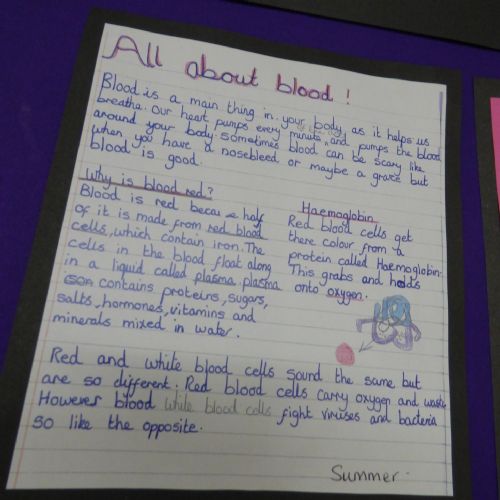 All about blood !
Blood is a main thing in your body, as it helps us
breathe. Our heart pumps every minute, and pumps the blood
around your body. Sometimes blood can be scary like
when you have a nosebleed or maybe a graze but
blood is good.
Why is blood red?
Blood is red because half
of it is made from red blood
cells, which contain iron. The
cells in the blood float along
in a liquid called plasma. plasma
contains proteins, sugars,
salts, hormones, vitamins and
minerals mixed in water.
Haemoglobin
Red blood cells get
there colour from a
protein called Haemoglobin.
This grabs and holds
onto oxygen.
Red and white blood cells sound the same but
are so different. Red blood cells carry oxygen and waste
However blood white blood cells fight viruses and bacteria
so like the opposite.
Summer.